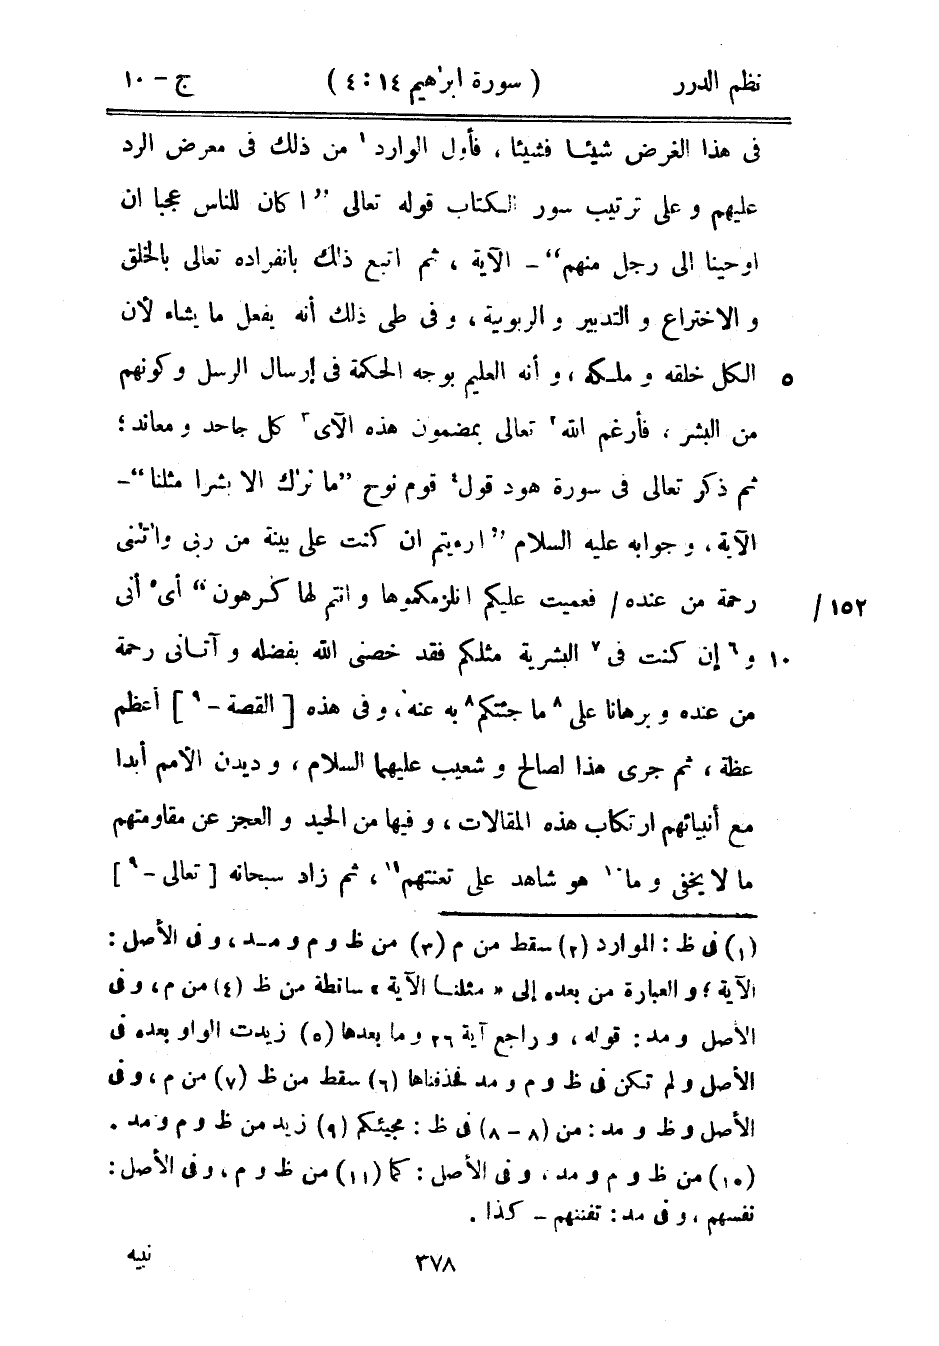 نظم الدرر ( سورة ابرٰهيم ١٤ : ٤ ) ج - ١٠
فى هذا الغرض شيئا فشيئا ، فأول الوارد ١ من ذلك فى معرض الرد
عليهم و على ترتيب سور الكتاب قوله تعالى ” ا كان للناس عجبا ان
اوحينا الى رجل منهم “ - الآية ، ثم اتبع ذلك بانفراده تعالى بالخلق
و الاختراع و التدبير و الربوبية ، و فى طى ذلك أنه يفعل ما يشاء لأن
٥ الكل خلقه و ملكه ، و أنه العليم بوجه الحكمة فى إرسال الرسل و كونهم
من البشر ، فأرغم الله ٢ تعالى بمضمون هذه الآى ٣ كل جاحد و معاند ؛
ثم ذكر تعالى فى سورة هود قول ٤ قوم نوح ” ما نرٰك الا بشرا مثلنا “ -
الآية ، و جوابه عليه السلام ” ارءيتم ان كنت على بينة من ربى واٰتٰنى
رحمة من عنده / فعميت عليكم انلزمكموها و انتم لها كٰرهون “ أى ٥ أنى / ١٥٢
١٠ و ٦ إن كنت فى ٧ البشرية مثلكم فقد خصنى الله بفضله و آتانى رحمة
من عنده و برهانا على ٨ ما جئتكم ٨ به عنه ، و فى هذه [ القصة - ٩ ] أعظم
عظة ، ثم جرى هذا لصالح و شعيب عليهما السلام ، و ديدن الأمم أبدا
مع أنبيائهم ارتكاب هذه المقالات ، و فيها من الحيد و العجز عن مقاومتهم
ما لا يخفى و ما ١٠ هو شاهد على تعنتهم ١١ ، ثم زاد سبحانه [ تعالى - ٩ ]
(١) فى ظ : الموارد (٢) سقط من م (٣) من ظ و م و مد ، و فى الأصل :
الآية ؛ و العبارة من بعده إلى « مثلنا الآية » ساقطة من ظ (٤) من م ، و فى
الأصل و مد : قوله ، و راجع آية ٢٦ و ما بعدها (٥) زيدت الواو بعده فى
الأصل و لم تكن فى ظ و م و مد فحذفناها (٦) سقط من ظ (٧) من م ، و فى
الأصل و ظ و مد : من (٨ - ٨) فى ظ : مجيئكم (٩) زيد من ظ و م و مد .
(١٠) من ظ و م و مد ، و فى الأصل : كما (١١) من ظ و م ، و فى الأصل :
نفسهم ، و فى مد : تفننهم - كذا .
٣٧٨ نبيه